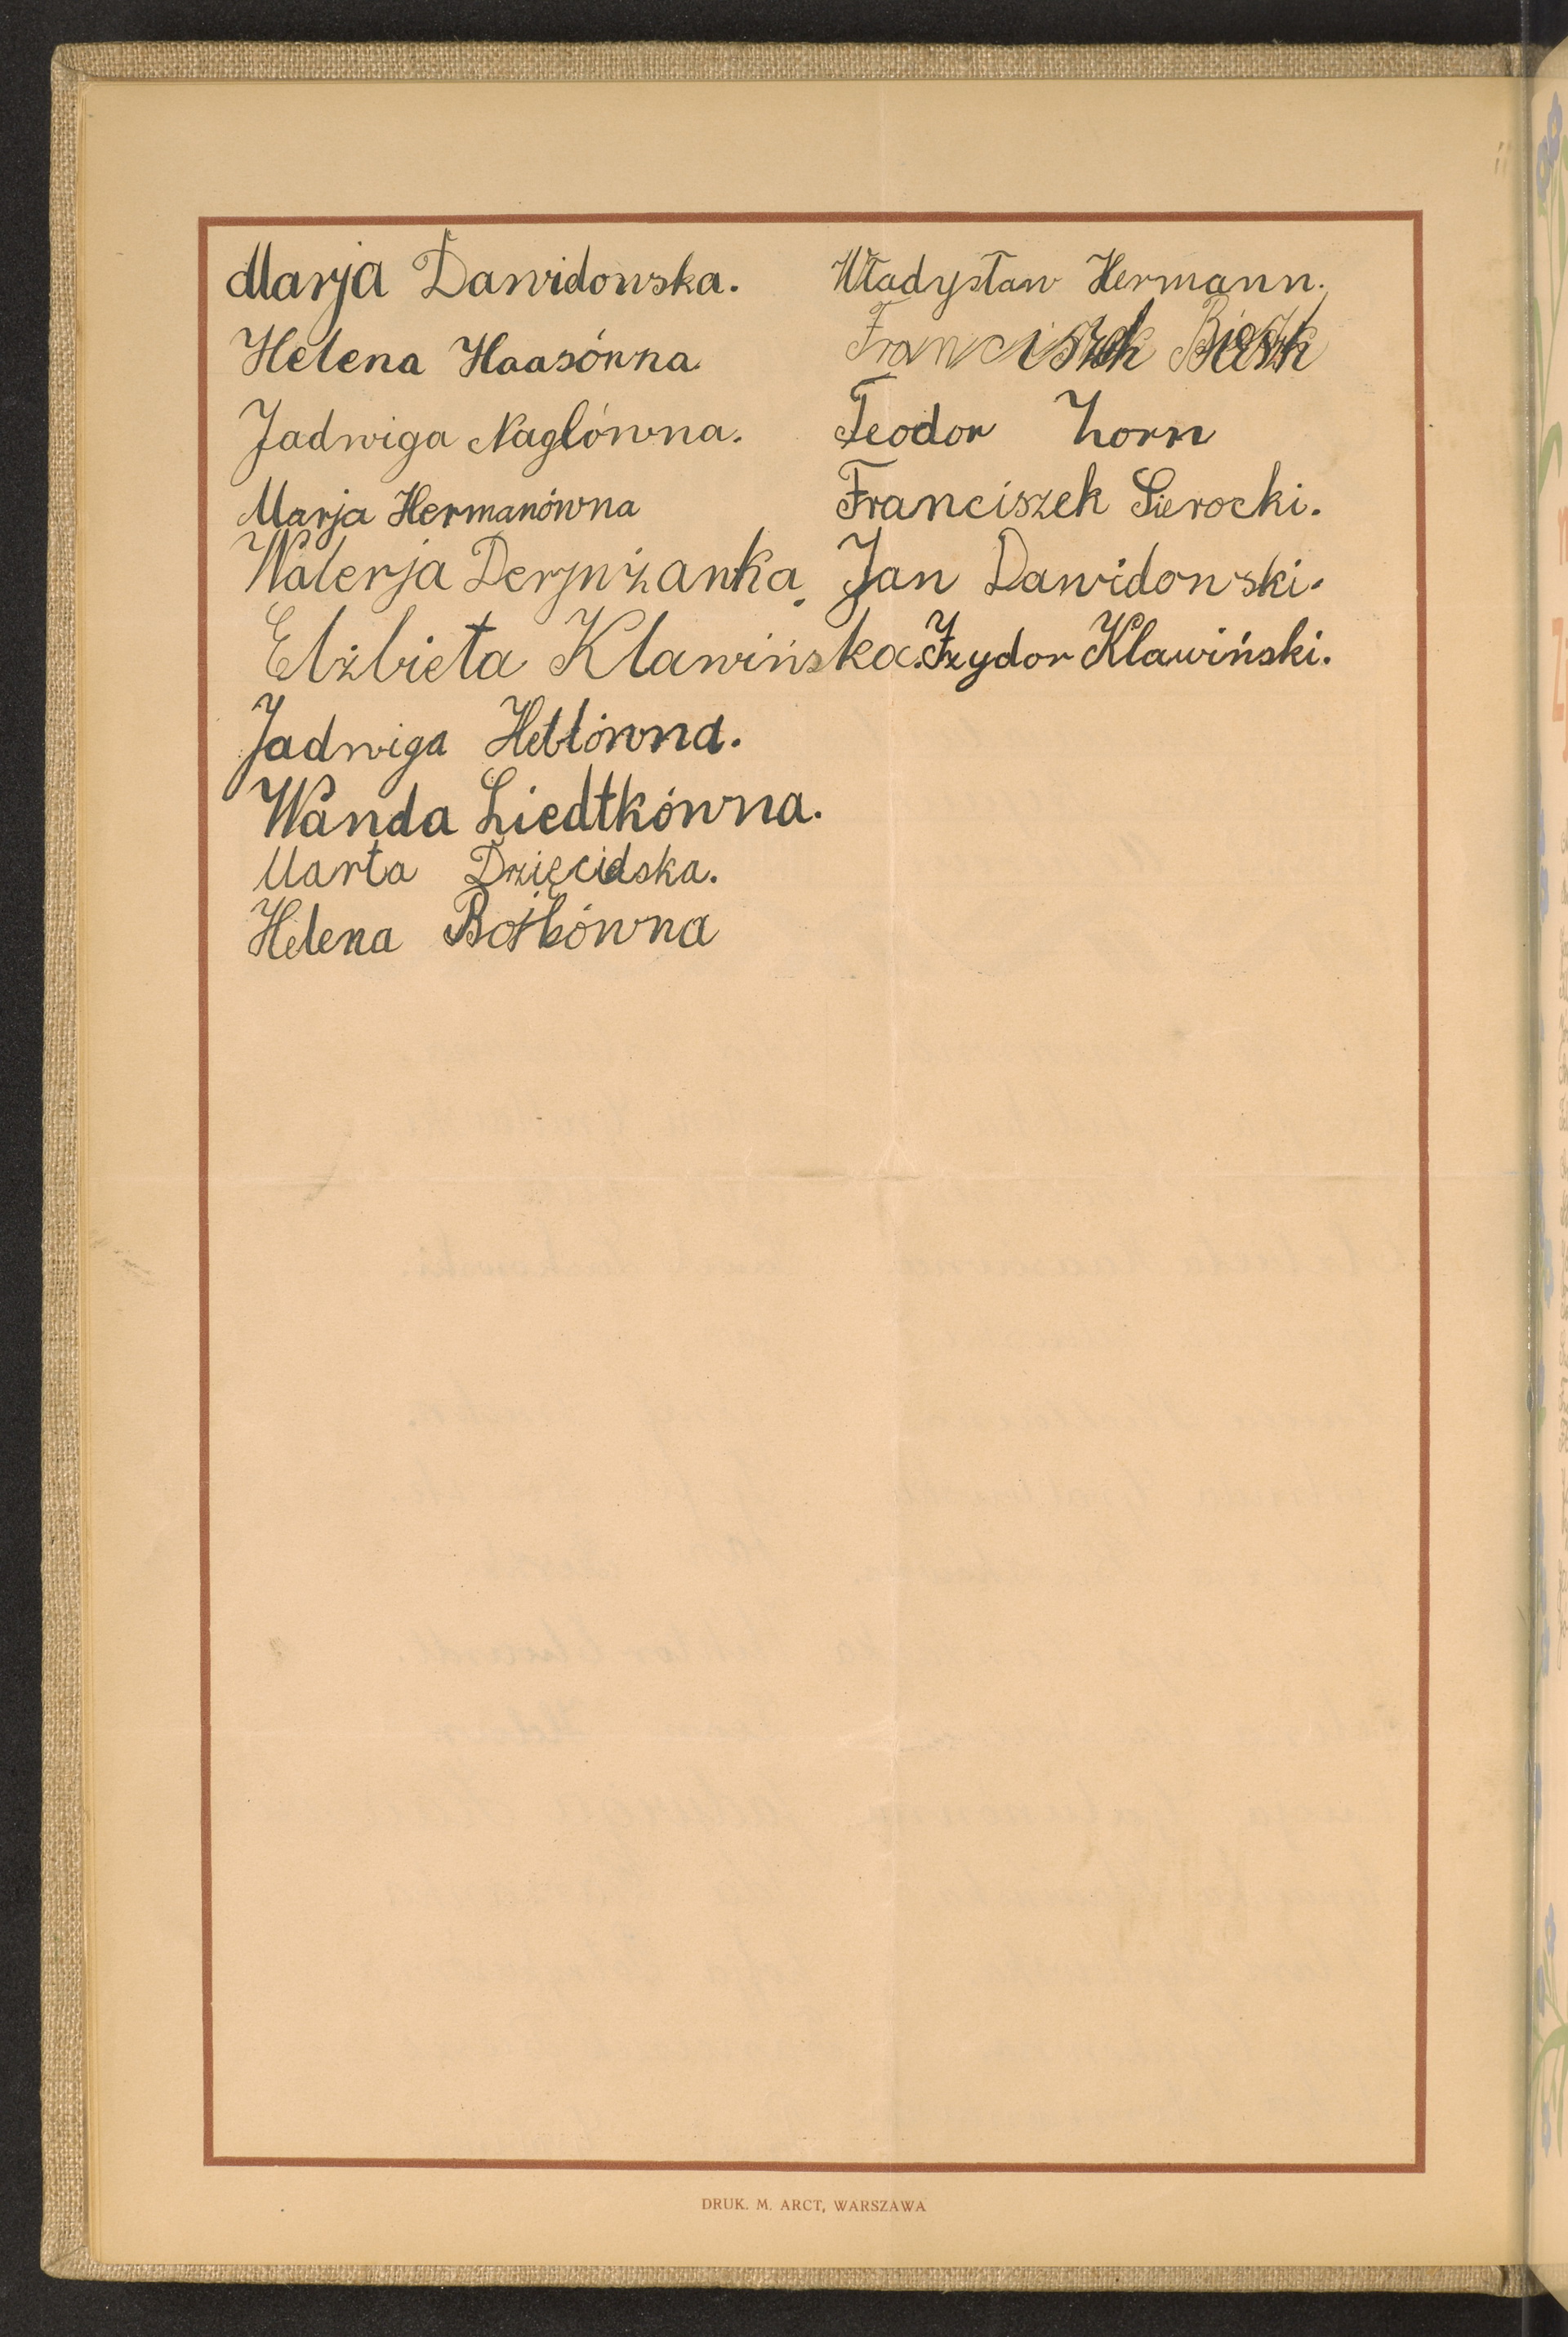 Marja Dawidowska.
Helena Haasówna
Jadwiga Naglówna.
Marja Hermanówna
Walerja Derynżanka.
Elżbieta Klawińska.
Jadwiga Hetlówna.
Wanda Liedtkówna.
Marta Dzięcidska.
Helena
Władysław Hermann.
Franciszek
Teodor Zorn
Franciszek Sierocki.
Jan Dawidowski.
Izydor Klawiński.
DRUK. M. ARCT, WARSZAWA